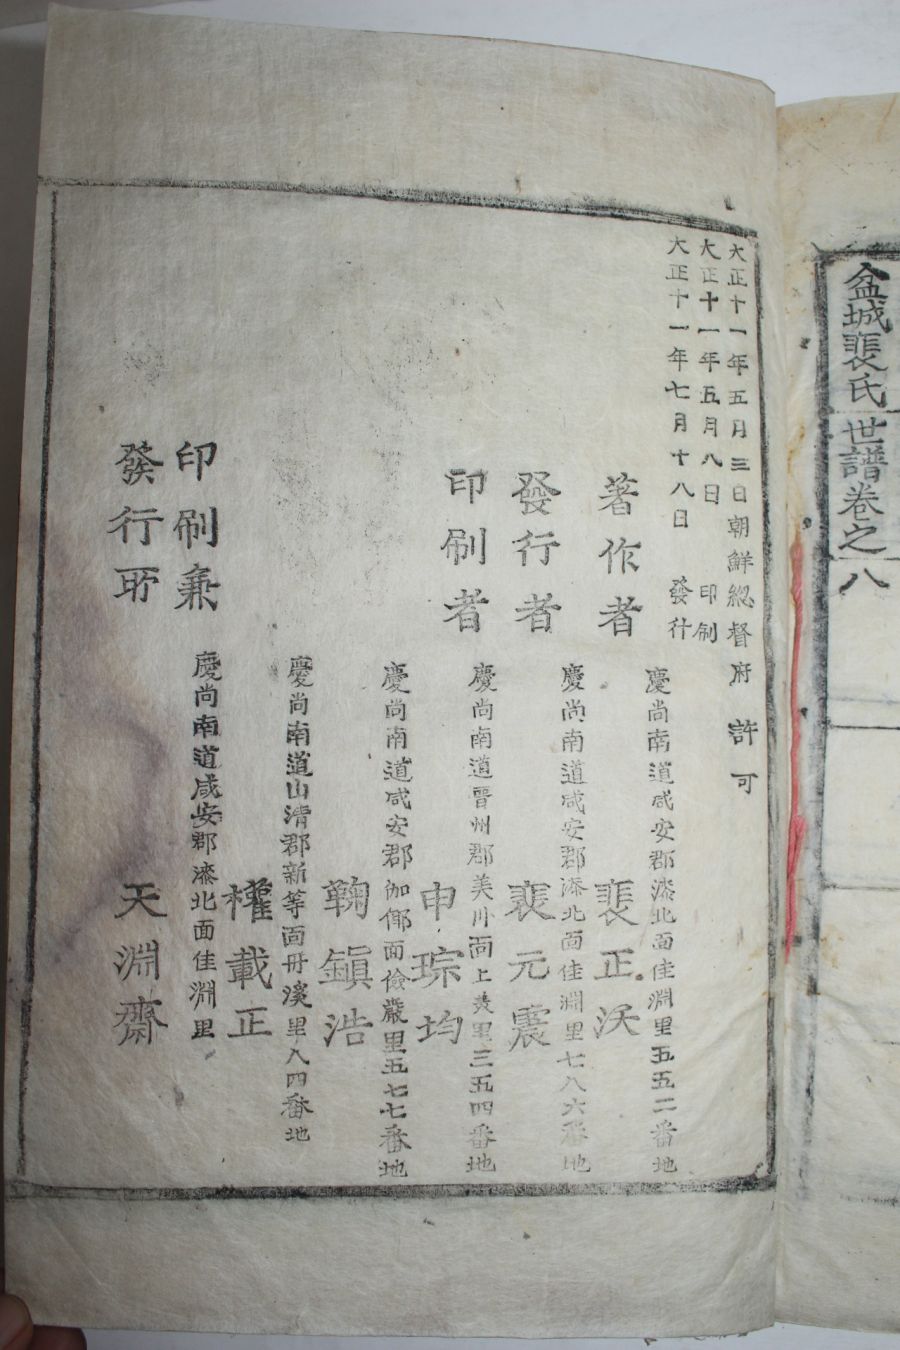 盆城裵氏世譜卷之八
大正十一年五月三日朝鮮總督府 許可
大正十一年五月八日 印刷
大正十一年七月十八日 發行
慶尚南道咸安郡漆北面佳淵里五五二番地
著作者 裵正沃
慶尚南道咸安郡漆北面佳淵里七八六番地
發行者 裵元震
慶尚南道晋州郡美川面上美里三五四番地
印刷者 申琮均
慶尚南道咸安郡伽倻面儉巖里五七七番地
鞠鎭浩
慶尚南道山清郡新等面丹溪里八四番地
權載正
慶尚南道咸安郡漆北面佳淵里
印刷兼
發行所 天淵齋